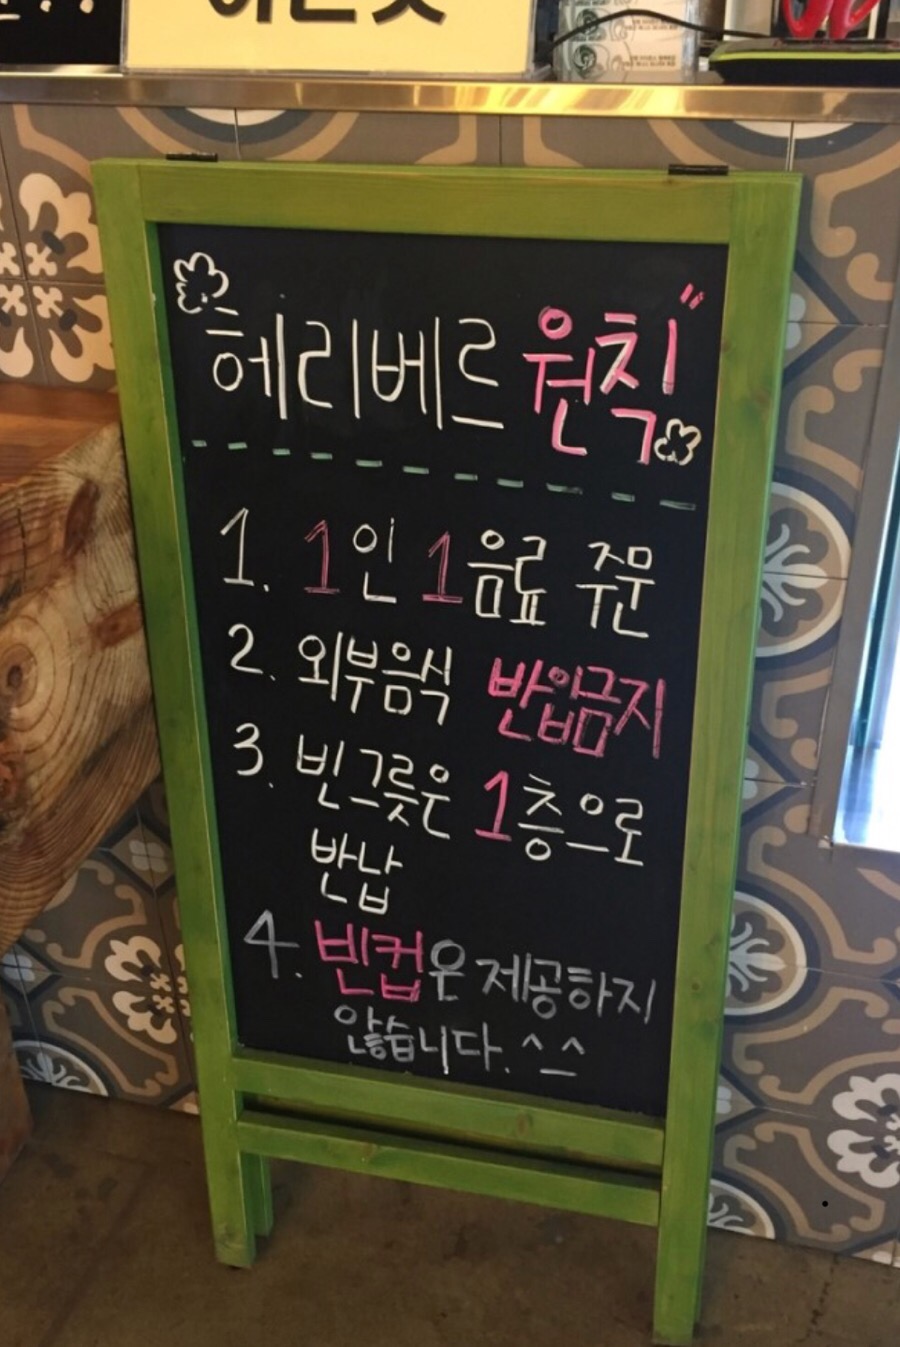 헤리베르 원칙"
1. 1인 1음료 주문
2. 외부음식 반입금지
3. 빈그릇은 1층으로
반납
4. 빈컵은 제공하지
않습니다. ^^